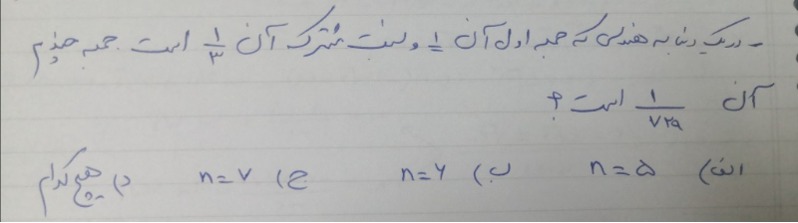 - در یک دنباله هندسی که جمله اول آن 1/9 و نسبت مشترک آن 1/۳ است جمله چندم
آن 1/۷۲۹ است ؟
الف) n=۵ ب) n=۶ ج) n=۷ د) هیچ کدام